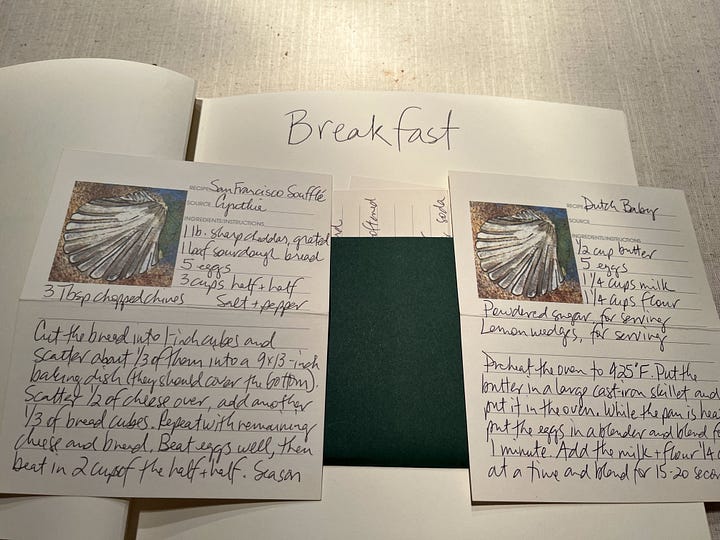 Breakfast
RECIPE San Francisco Soufflé
SOURCE Cynthia
INGREDIENTS/INSTRUCTIONS
1 lb. sharp cheddar, grated
1 loaf sourdough bread
5 eggs
3 cups half + half
3 Tbsp chopped chives Salt + pepper
Cut the bread into 1-inch cubes and
scatter about 1/3 of them into a 9x13-inch
baking dish (they should cover the bottom).
Scatter 1/2 of cheese over, add another
1/3 of bread cubes. Repeat with remaining
cheese and bread. Beat eggs well, then
beat in 2 cups of the half + half. Season
oftened
soda
Dutch Baby
SOURCE
INGREDIENTS/INSTRUCTIONS
1/2 cup butter
5 eggs
1 1/4 cups milk
1 1/4 cups flour
Powdered sugar, for serving
Lemon wedges, for serving
Preheat the oven to 425°F. Put the
butter in a large cast-iron skillet and
put it in the oven. While the pan is hea
put the eggs in a blender and blend f
1 minute. Add the milk + flour 1/4 c
at a time and blend for 15-20 secon